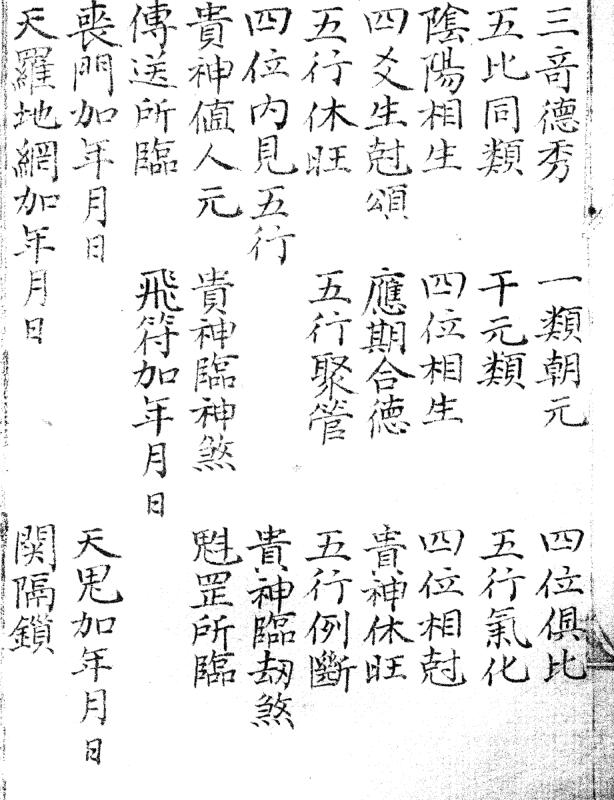 三竒德秀 一類朝元 四位俱比
五比同類 干元類 五行氣化
陰陽相生 四位相生 四位相尅
四爻生尅頌 應期合德 貴神休旺
五行休旺 五行聚管 五行例斷
四位內見五行 貴神臨劫煞
貴神值人元 貴神臨神煞 魁罡所臨
傳送所臨 飛符加年月日
喪門加年月日 天鬼加年月日
天羅地網加年月日 関隔鎖